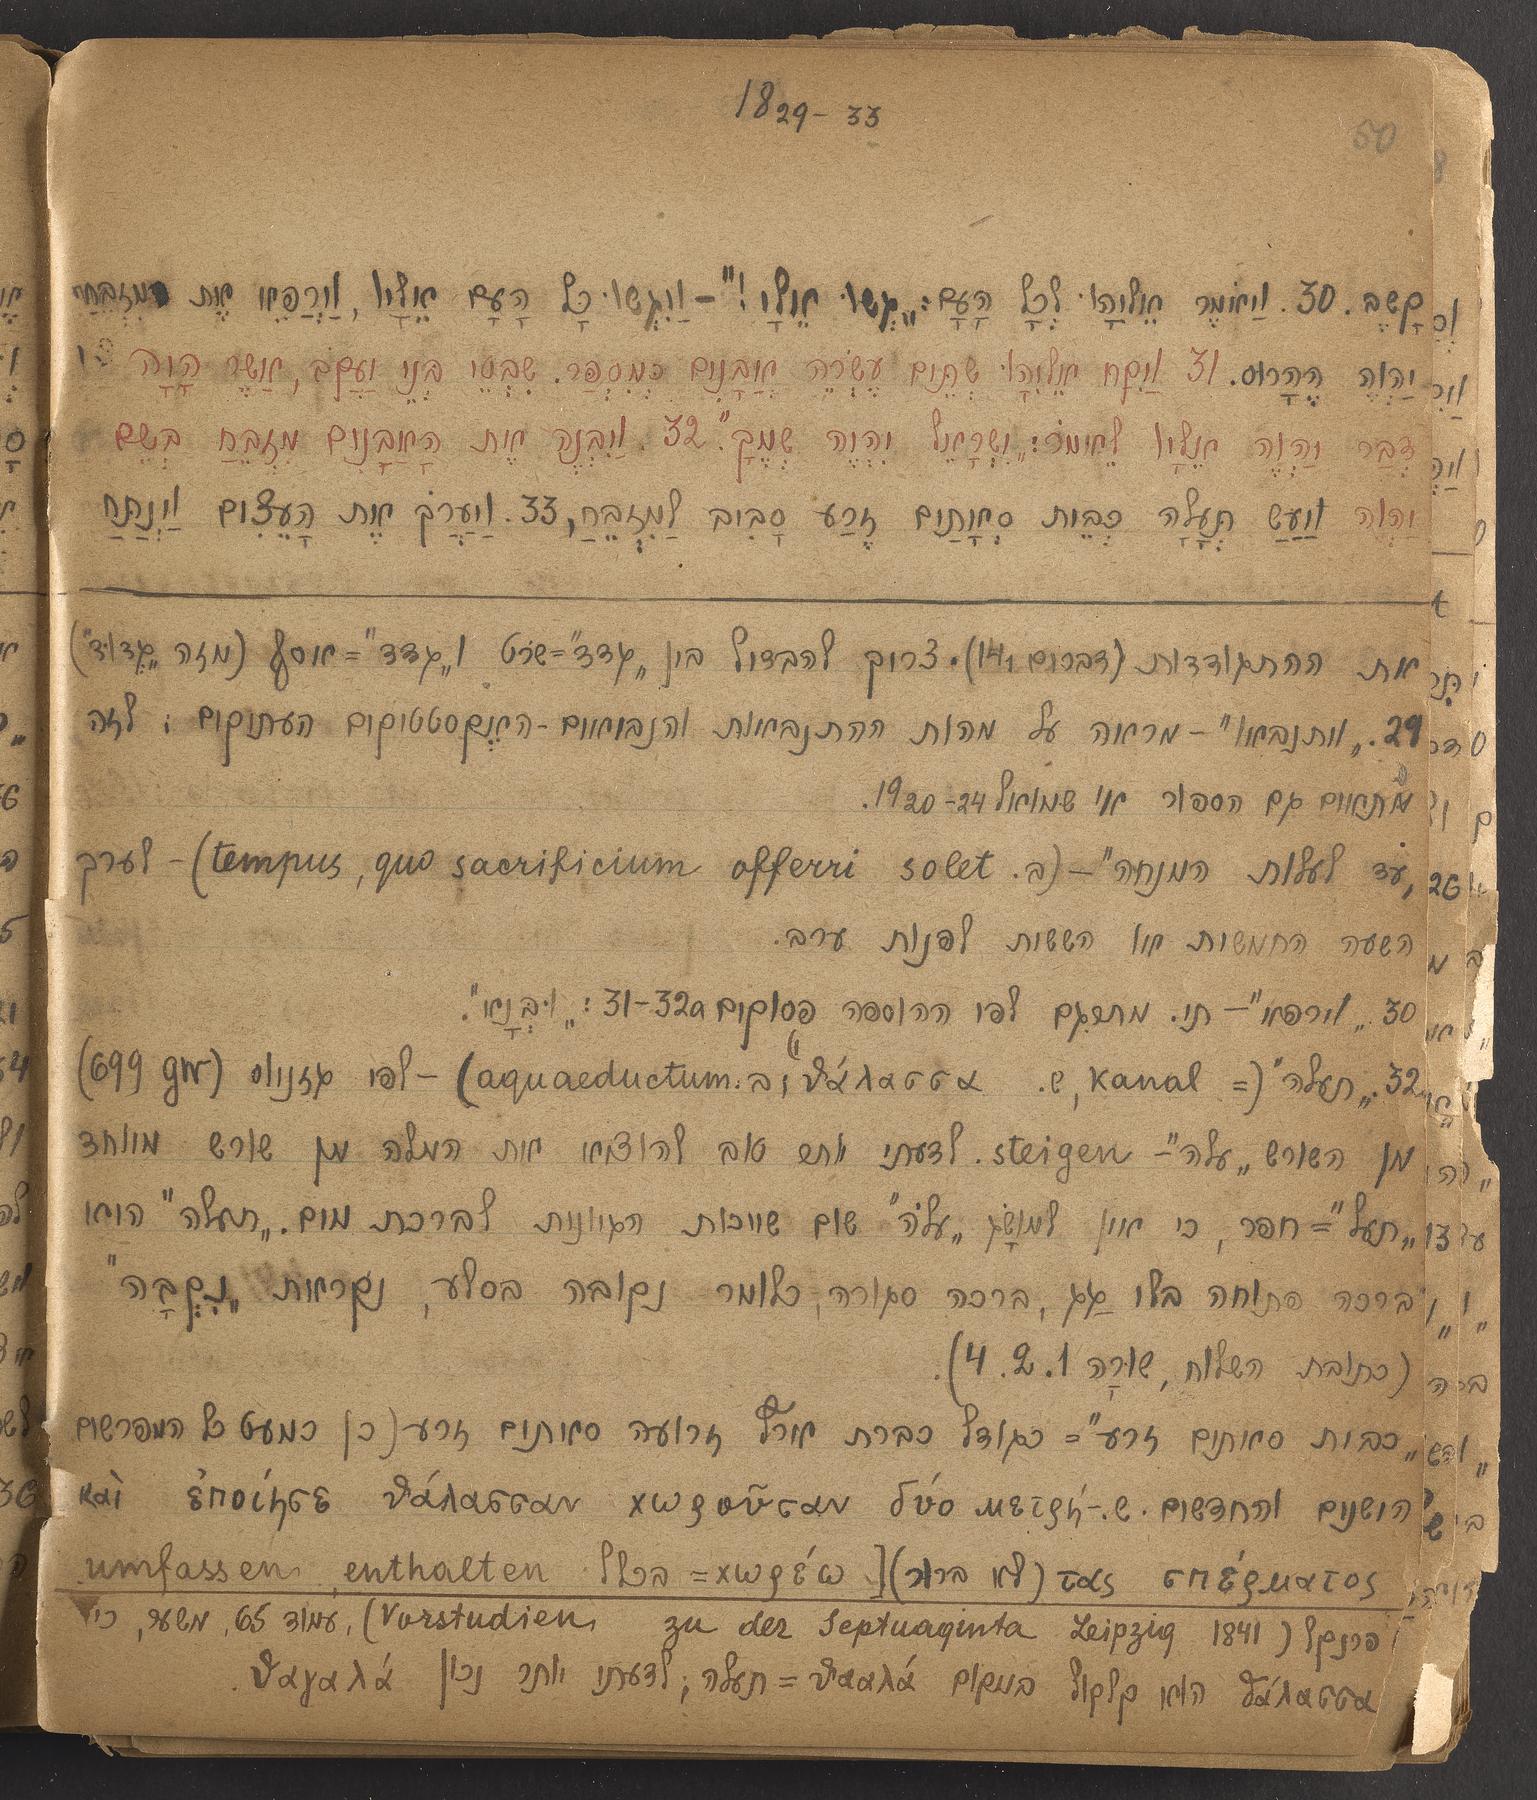 18 29-33
50
קָשֶׁב. 30. וַיֹּאמֶר אֵלִיָּהוּ לְכָל הָעָם: „גְּשׁוּ אֵלָי!" – וַיִּגְּשׁוּ כָל הָעָם אֵלָיו, וַיְרַפֵּא אֶת מִזְבַּח
יַהְוֶה הֶהָרוּס. 31 וַיִּקַּח אֵלִיָּהוּ שְׁתֵּים עֶשְׂרֵה אֲבָנִים כְּמִסְפַּר שִׁבְטֵי בְּנֵי יַעֲקֹב, אֲשֶׁר הָיָה
דְּבַר יַהְוֶה אֵלָיו לֵאמֹר: „יִשְׂרָאֵל יִהְיֶה שְׁמֶךָ". 32. וַיִּבְנֶה אֶת הָאֲבָנִים מִזְבֵּחַ בְּשֵׁם
יַהְוֶה וַיַּעַשׂ תְּעָלָה כְּבֵית סָאתַיִם זֶרַע סָבִיב לַמִּזְבֵּחַ, 33. וַיַּעֲרֹךְ אֶת הָעֵצִים וַיְנַתַּח
את ההתגודדות (דברים 14,1). צריך להבדיל בין „גדד"=שרט ו„גדד"=אוסף (מזה „גְּדוּד")
29. „ויתנבאו" – מראה על מהות ההתנבאות והנביאים-האֶקסטטיקים העתיקים; לזה
מתאים גם הספור אי שמואל 19 20-24.
„עד לעלות המנחה" – (ב. tempus, quo sacrificium offerri solet) – לערך
השעה החמשית או הששית לפנות ערב.
30 „וירפא" – תי. מתרגם לפי ההוספה פסוקים 31-32a: „וּבְנָא".
32. „תעלה" (= Kanal, ש. θάλασσα; ב: aquaeductum) – לפי גזניוס (699 gw)
מן השורש „עלה" – steigen. לדעתי יותר טוב להוציא את המלה מן שורש מיוחד
„תעל"= חפר, כי אין למוּשָׂג „עלה" שום שייכות הגיונית לברכת מים. „תעלה" היא
ברכה פתוחה בלי גַג, ברכה סגורה, כלומר נקובה בסלע, נקראת „נְקֵבָה"
(כתובת השלוח, שוּרָה 1. 2. 4).
„כבית סאתים זרע"= כגודל כברת ארץ זרועה סאתים זרע – (כן כמעט כל המפרשים
הישנים והחדשים. ש.- καὶ ἐποίησε θάλασσαν χωροῦσαν δύο μετρή-
τας σπέρματος (לא ברור) [χωρέω = בכלל umfassen, enthalten
פרנקל (Vorstudien zu der Septuaginta Leipzig 1841), עמוד 65, משער, כי
θάλασσα הוא קלקול במקום θααλά = תעלה; לדעתי יותר נכון θαγαλά.